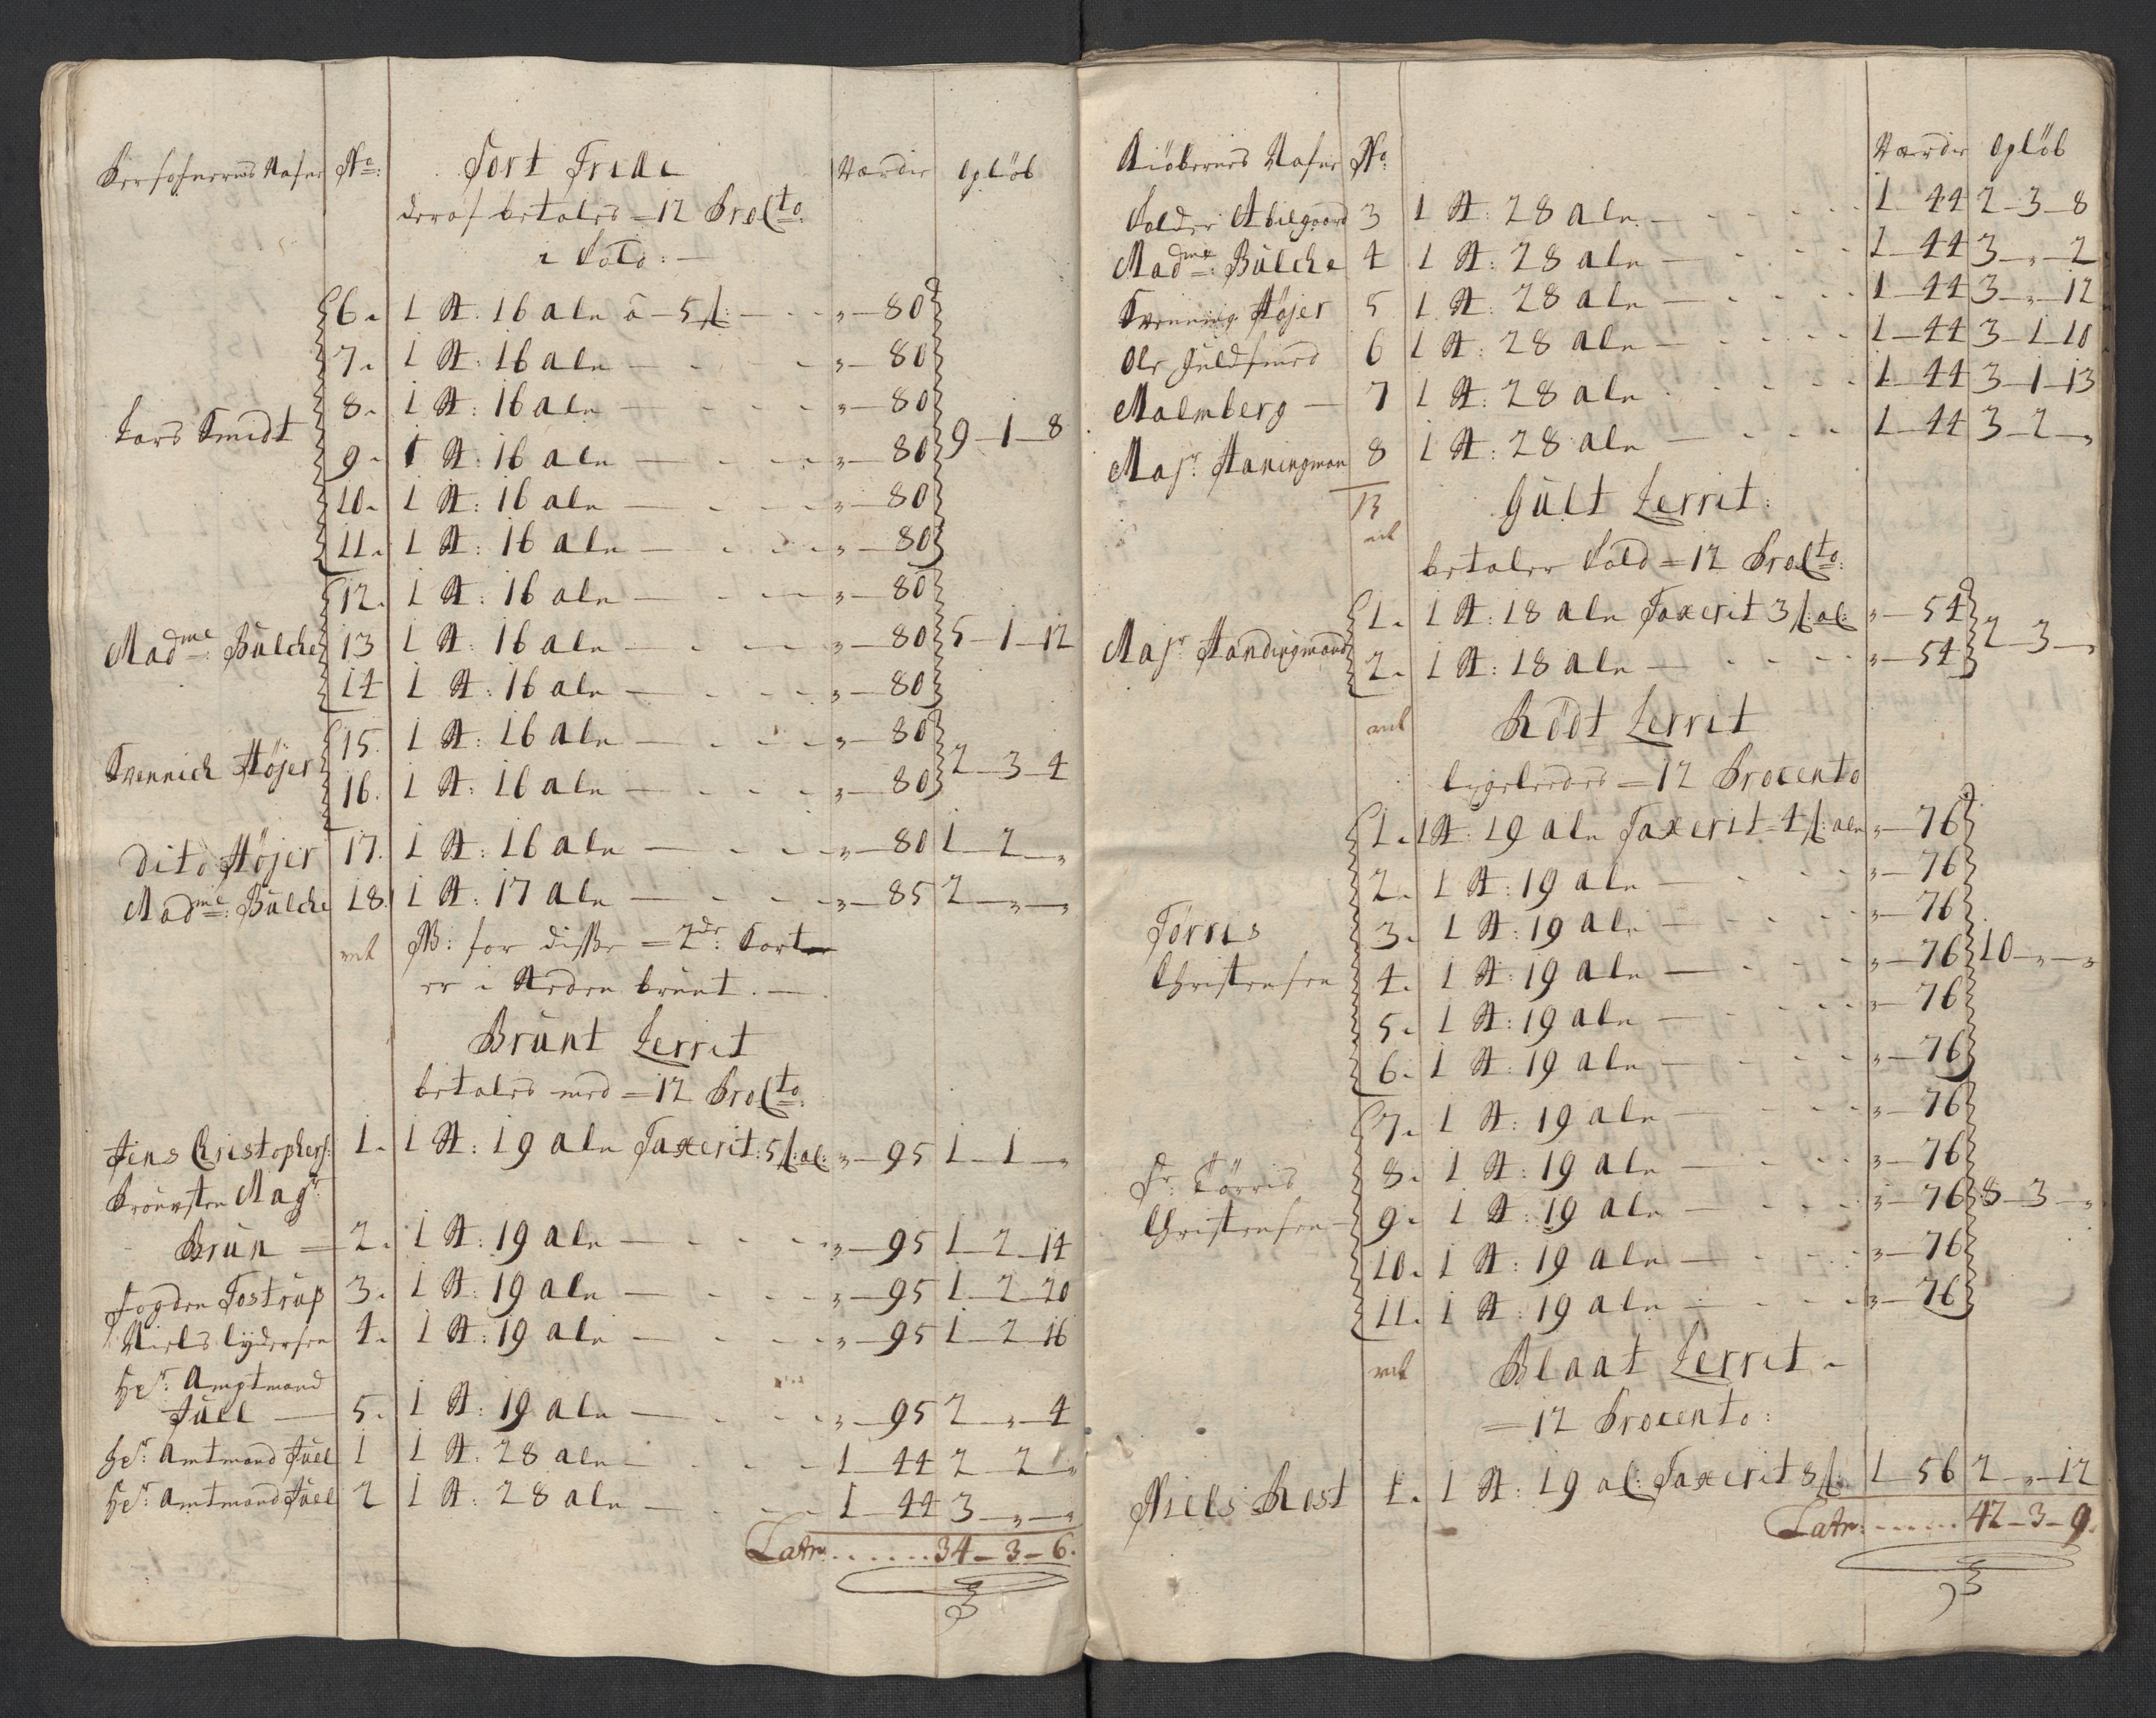 Personernes Nafne No: Sort Frede Værdie Opløb
deraf betales =12 Procto:
i Told: —
6. 1 St. 16 aln à 5 ß: — „—80
7. 1 St: 16 aln — „—80
8. 1 St: 16 aln — „—80
Lars Smidt 9—1—8
9. 1 St: 16 aln — „—80
10. 1 St: 16 aln — „—80
11. 1 St: 16 aln — „—80
12. 1 St: 16 aln — „—80
Madme: Bülche 13 1 St: 16 aln — „—80 5—1—12
14 1 St: 16 aln — „—80
15. 1 St: 16 aln — „—80
Svennich Højer 2—3—4
16. 1 St: 16 aln — „—80
Dito Højer 17. 1 St: 16 aln — „—80 1—2—„
Madme: Bülche 18. 1 St: 17 aln — „—85 2—„—„
NB: for disse =2de: Sort
er i Steden brunt. —
Brunt Zerrit
betales med =12 Procto:
Jens Christophers: 1. 1 St: 19 aln Taxerit: 5 ß: al: „—95 1—1—„
Magr:
Brun = 2. 1 St: 19 aln — „—95 1—2—14
Fogden Tostrup 3. 1 St: 19 aln — „—95 1—2—20
Niels lydersen 4. 1 St: 19 aln — „—95 1—2—16
Hr: Amptmand
Juel — 5. 1 St: 19 aln — „—95 2—„—4
Hr: Amtmand Juel 1 1 St: 28 aln — 1—44 2—2—„
Hr: Amtmand Juel 2 1 St: 28 aln — 1—44 3—„—„
Latr: ...... 34—3—6.
Kiøbernes Nafne No: Værdie Opløb
Tolder Abilgaard 3 1 St: 28 aln — 1—44 2—3—8
Madme: Bülche 4 1 St: 28 aln — 1—44 3—„—2
Svenning Højer 5 1 St: 28 aln — 1—44 3—„—12
Ole Guldsmed 6 1 St: 28 aln — 1—44 3—1—10
Malmberg — 7 1 St: 28 aln 1—44 3—1—13
Majr: Haningman 8 1 St: 28 aln — 1—44 3—2—„
13 Gult Zerrit:
betaler Told =12 Procto:
1. 1 St: 18 aln Taxerit 3 ß: al: „—54
Majr: Handingmand 2—3—„
2. 1 St: 18 aln — „—54
Rödt Zerrit
ligeledes =12 Procento
1. 1 St: 19 aln Taxerit 4 ß: aln „—76
2. 1 St: 19 aln — „—76
Tørres 3. 1 St: 19 aln — „—76
Christensen 4. 1 St: 19 aln — „—76 10—„—„
5. 1 St: 19 aln — „—76
6. 1 St: 19 aln — „—76
7. 1 St: 19 aln — „—76
Sr: Törris 8. 1 St: 19 aln — „—76
Christensen 9. 1 St: 19 aln — „—76 8—3—„
10. 1 St: 19 aln — „—76
11. 1 St: 19 aln — „—76
Blaat Zerrit —
=12 Procento:
Niels Rost 1. 1 St: 19 al: Taxerit 8 ß: 1—56 2—„—12
Latr: ...... 42—3—9.